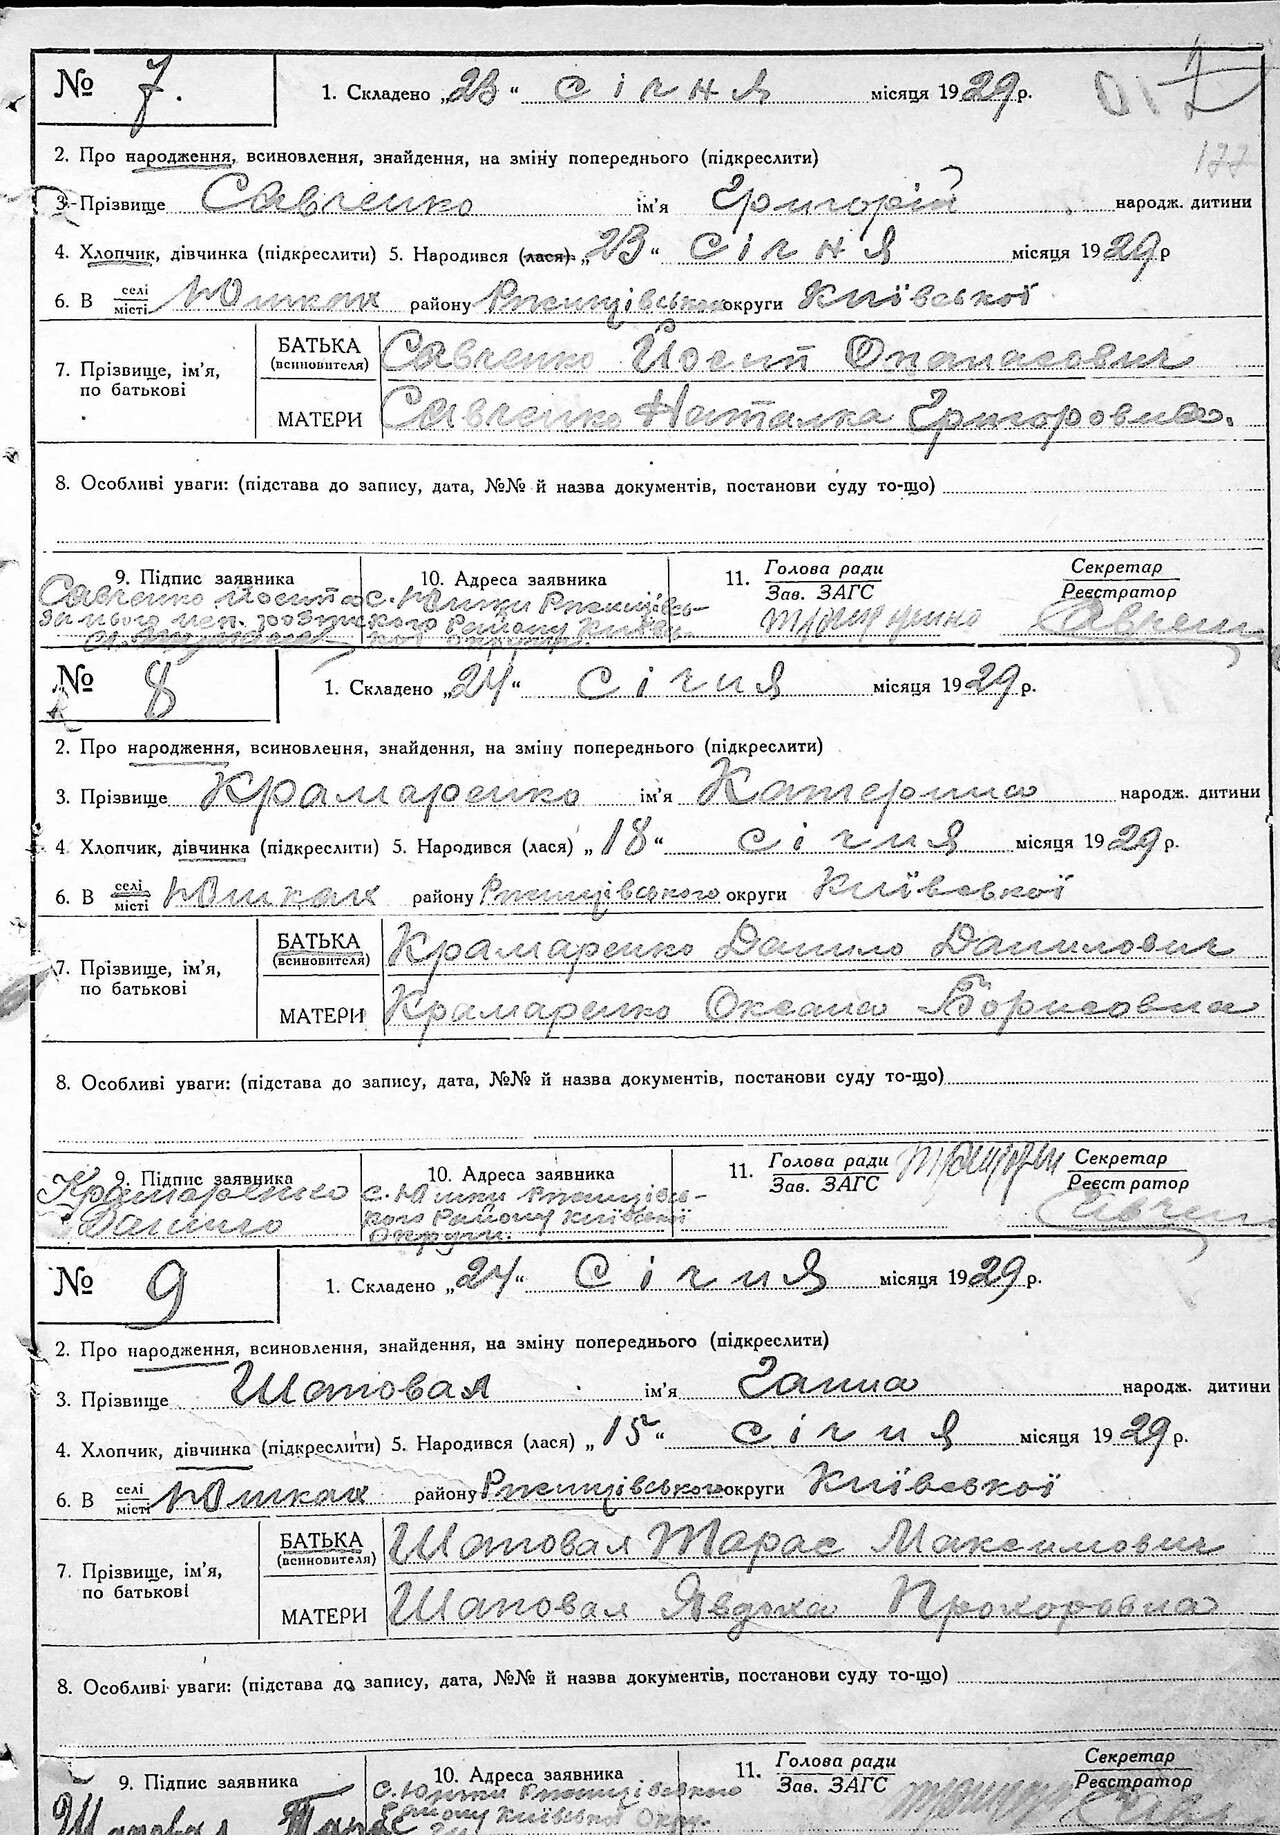 № 7.
1. Складено „23“ січня місяця 1929 р.
2. Про народження, всиновлення, знайдення, на зміну попереднього (підкреслити)
3. Прізвище Савченко ім'я Григорій народж. дитини
4. Хлопчик, дівчинка (підкреслити) 5. Народився (лася) „23“ січня місяця 1929 р
6. В селі місті Юшках району Ржищівського округи Київської
7. Прізвище, ім'я, по батькові
БАТЬКА (всиновителя) Савченко Йосип Опанасович
МАТЕРИ Савченко Наталка Григоровна.
8. Особливі уваги: (підстава до запису, дата, №№ й назва документів, постанови суду то-що)
9. Підпис заявника
Савченко Йосип а
за нього неп. розпис
10. Адреса заявника
с. Юшки Ржищівсь-
кого Району Київсь-
кої Округи
11. Голова ради
Зав. ЗАГС
Секретар
Реєстратор
Савчен
№ 8
1. Складено „24“ січня місяця 1929 р.
2. Про народження, всиновлення, знайдення, на зміну попереднього (підкреслити)
3. Прізвище Крамаренко ім'я Катерина народж. дитини
4. Хлопчик, дівчинка (підкреслити) 5. Народився (лася) „18“ січня місяця 1929 р.
6. В селі місті Юшках району Ржищівського округи Київської
7. Прізвище, ім'я, по батькові
БАТЬКА (всиновителя) Крамаренко Данило Данилович
МАТЕРИ Крамаренко Оксана Борисовна
8. Особливі уваги: (підстава до запису, дата, №№ й назва документів, постанови суду то-що)
9. Підпис заявника
Крамаренко
Данило
10. Адреса заявника
с. Юшки Ржищівсь-
кого Району Київської
Округи.
11. Голова ради
Зав. ЗАГС
Секретар
Реєстратор
Савчен
№ 9
1. Складено „24“ січня місяця 1929 р.
2. Про народження, всиновлення, знайдення, на зміну попереднього (підкреслити)
3. Прізвище Шаповал ім'я Ганна народж. дитини
4. Хлопчик, дівчинка (підкреслити) 5. Народився (лася) „15“ січня місяця 1929 р.
6. В селі місті Юшках району Ржищівського округи Київської
7. Прізвище, ім'я, по батькові
БАТЬКА (всиновителя) Шаповал Тарас Максимович
МАТЕРИ Шаповал Явдоха Прохоровна
8. Особливі уваги: (підстава до запису, дата, №№ й назва документів, постанови суду то-що)
9. Підпис заявника
Шаповал Тарас
10. Адреса заявника
с. Юшки Ржищівського
Району Київської Окру-
11. Голова ради
Зав. ЗАГС
Секретар
Реєстратор